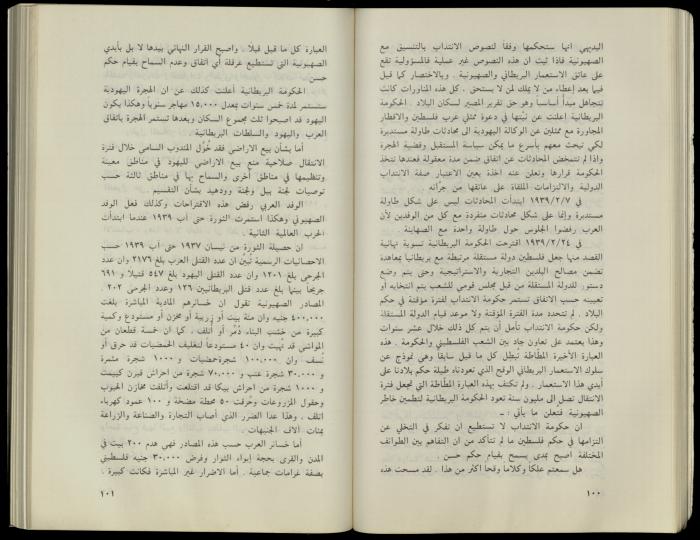 البديهي انها ستحكمها وفقاً لنصوص الانتداب بالتنسيق مع
الصهيونية فاذا ثبت ان هذه النصوص غير عملية فالمسؤولية تقع
على عاتق الاستعمار البريطاني والصهيونية . وبالاختصار كما قيل
فيما بعد إعطاء من لا يملك لمن لا يستحق . كل هذه المناورات كانت
تتجاهل مبدأ أساسيا وهو حق تقرير المصير لسكان البلاد . الحكومة
البريطانية اعلنت عن نيتها في دعوة ممثلي عرب فلسطين والاقطار
المجاورة مع ممثلين عن الوكالة اليهودية الى محادثات طاولة مستديرة
لكي تبحث معهم بأسرع ما يمكن سياسة المستقبل وقضية الهجرة
واذا لم تتمخض المحادثات عن اتفاق ضمن مدة معقولة فعندها تتخذ
الحكومة قرارها وتعلن عنه اخذة بعين الاعتبار صفة الانتداب
الدولية والالتزامات الملقاة على عاتقها من جرّائه .
في ١٩٣٩/٢/٧ ابتدأت المحادثات ليس على شكل طاولة
مستديرة وإنما على شكل محادثات منفردة مع كل من الوفدين لأن
العرب رفضوا الجلوس حول طاولة واحدة مع الصهاينة .
في ١٩٣٩/٢/٢٤ اقترحت الحكومة البريطانية تسوية نهائية
القصد منها جعل فلسطين دولة مستقلة مرتبطة مع بريطانيا بمعاهدة
تضمن مصالح البلدين التجارية والاستراتيجية وحتى يتم وضع
دستور للدولة المستقلة من قبل مجلس قومي للشعب يتم انتخابه أو
تعيينه حسب الاتفاق تستمر حكومة الانتداب لفترة مؤقتة في حكم
البلاد . لم تتحدد مدة الفترة المؤقتة ولا موعد قيام الدولة المستقلة
ولكن حكومة الانتداب تأمل أن يتم كل ذلك خلال عشر سنوات
وهذا يعتمد على تعاون جاد بين الشعب الفلسطيني والحكومة . هذه
العبارة الأخيرة المطّاطة تبطل كل ما قبل سابقاً وهي نموذج عن
سلوك الاستعمار البريطاني الوقح الذي تعودناه طيلة حكم بلادنا على
أيدي هذا الاستعمار . ولم تكتف بهذه العبارة المطّاطة التي تجعل فترة
الانتقال تصل الى مليون سنة تعود الحكومة البريطانية لتطمين خاطر
الصهيونية فتعلن ما يأتي : ـ
ان حكومة الانتداب لا تستطيع ان تفكر في التخلي عن
التزامها في حكم فلسطين ما لم تتأكد من ان التفاهم بين الطوائف
المختلفة اصبح بمدى يسمح بقيام حكم حسن .
هل سمعتم علكاً وكلاما وقحاً اكثر من هذا . لقد مسحت هذه
١٠٠
العبارة كل ما قبل قبلا . واصبح القرار النهائي بيدها لا بل بأيدي
الصهيونية التي تستطيع عرقلة أي اتفاق وعدم السماح بقيام حكم
حسن
الحكومة البريطانية أعلنت كذلك عن ان الهجرة اليهودية
ستستمر لمدة خمس سنوات بمعدل ١٥,٠٠٠ مهاجر سنويا وهكذا يكون
اليهود قد اصبحوا ثلث مجموع السكان وبعدها تستمر الهجرة باتفاق
العرب واليهود والسلطات البريطانية .
أما بشأن بيع الاراضي فقد خُوّل المندوب السامي خلال فترة
الانتقال صلاحية منع بيع الاراضي لليهود في مناطق معينة
وتنظيمها في مناطق أخرى والسماح بها في مناطق ثالثة حسب
توصيات لجنة بيل ولجنة وودهيد بشأن التقسيم .
الوفد العربي رفض هذه الاقتراحات وكذلك فعل الوفد
الصهيوني وهكذا استمرت الثورة حتى آب ١٩٣٩ عندما ابتدأت
الحرب العالمية الثانية .
ان حصيلة الثورة من نيسان ١٩٣٧ حتى آب ١٩٣٩ حسب
الاحصائيات الرسمية تبين ان عدد القتلى العرب بلغ ٢١٧٦ وان عدد
الجرحى بلغ ١٢٠١ وان عدد القتلى اليهود بلغ ٥٤٧ قتيلا و ٦٩١
جريحا بينما بلغ عدد قتلى البريطانيين ١٢٦ وعدد الجرحى ٢٠٢ .
المصادر الصهيونية تقول ان خسائرهم المادية المباشرة بلغت
٤٠٠,٠٠٠ جنيه وان مئة بيت أو زريبة أو مخزن أو مستودع وكمية
كبيرة من خشب البناء دُمّر أو أتلف . كما ان خمسة قطعان من
المواشي قد نُهبت وان ٤٠ مستودعاً لتغليف الحمضيات قد حرق أو
نُسف وان ١٠٠,٠٠٠ شجرة حمضيات و ١٠٠٠ شجرة مثمرة
و ٣٠,٠٠٠ شجرة عنب و ٧٠,٠٠٠ شجرة من احراش قيرن كييمت
و ١٠٠٠ شجرة من احراش بيكا قد اقتلعت وأتلفت مخازن الحبوب
وحقول المزروعات وحُرقت ٥٠ محطة مضخة و ١٠٠ عمود كهرباء
اتلف . وهذا عدا الضرر الذي أصاب التجارة والصناعة والزراعة
بمئات آلاف الجنيهات .
أما خسائر العرب حسب هذه المصادر فهي هدم ٢٠٠ بيت في
المدن والقرى بحجة إيواء الثوار وفرض ٣٠,٠٠٠ جنيه فلسطيني
بصفة غرامات جماعية . أما الاضرار غير المباشرة فكانت كبيرة .
١٠١